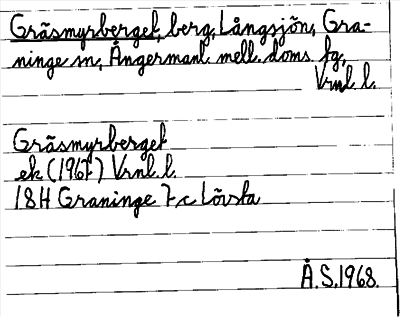 Gräsmyrberget, berg, Långsjön, Gra-
ninge sn, Ångermanl. mell. doms fg,
Vrnl. l.
Gräsmyrberget
ek (1967) Vrnl. l.
18H Graninge 7 c Lövsta
Å.S. 1968.